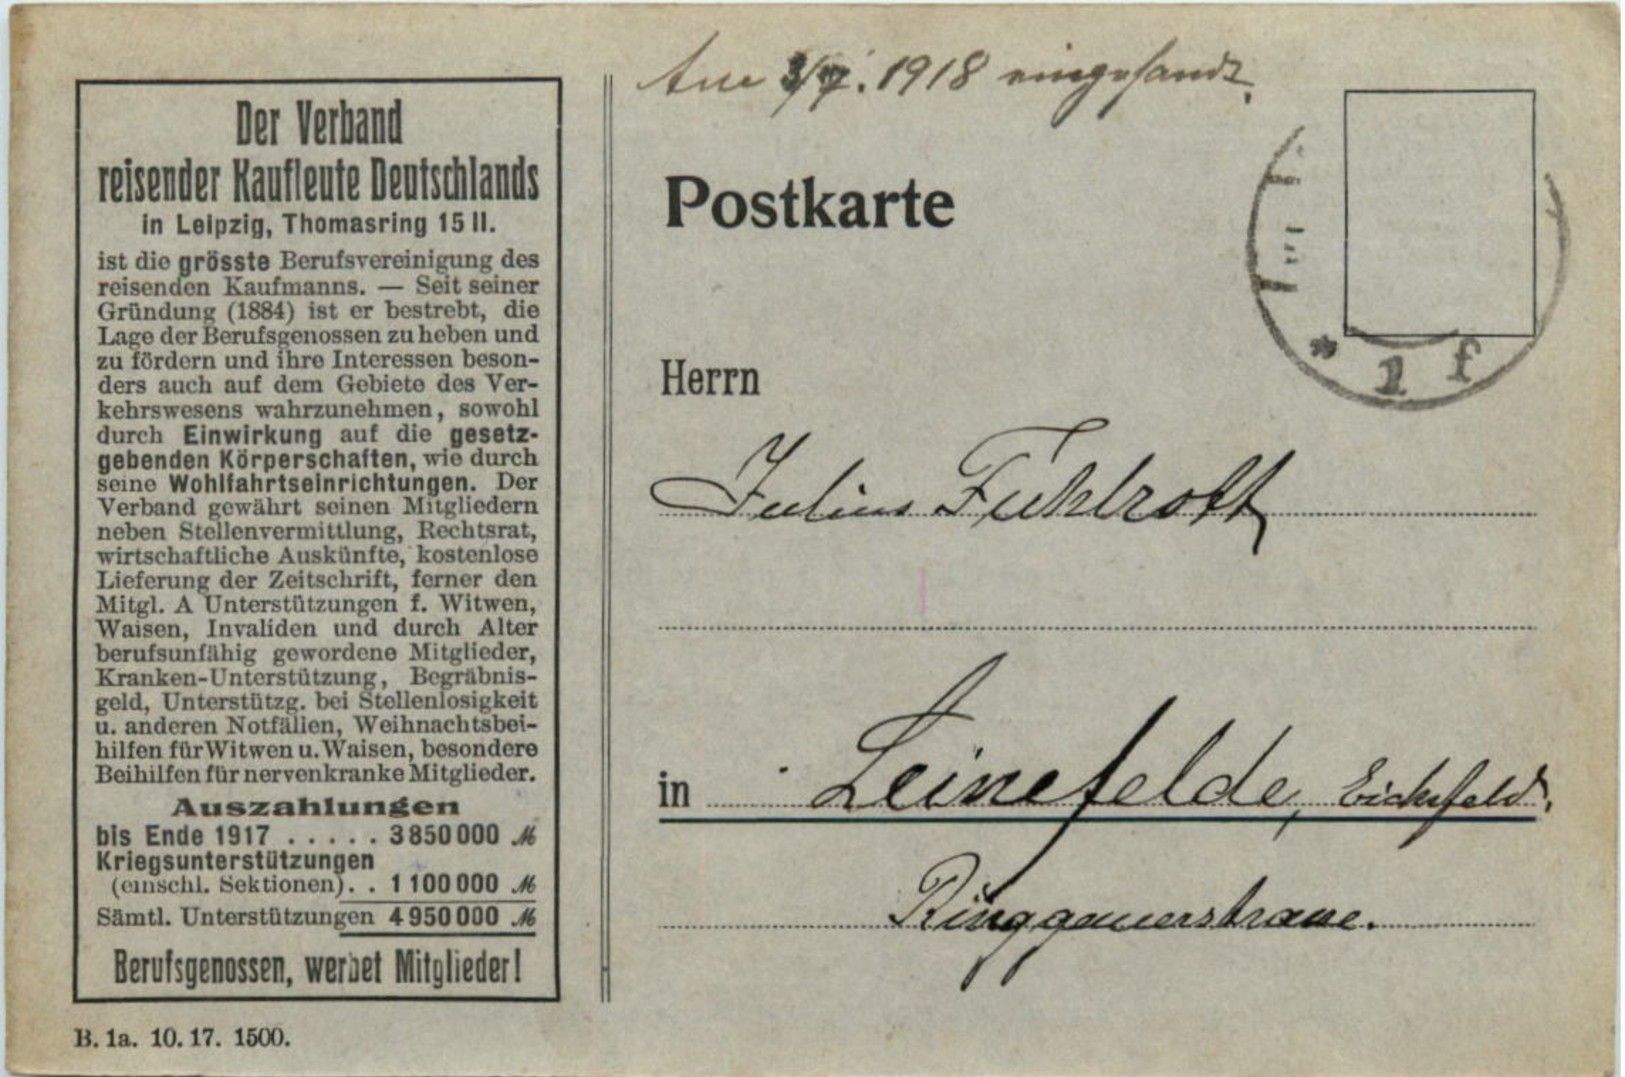 Der Verband
reisender Kaufleute Deutschlands
in Leipzig, Thomasring 15 II.
ist die grösste Berufsvereinigung des
reisenden Kaufmanns. — Seit seiner
Gründung (1884) ist er bestrebt, die
Lage der Berufsgenossen zu heben und
zu fördern und ihre Interessen beson-
ders auch auf dem Gebiete des Ver-
kehrswesens wahrzunehmen, sowohl
durch Einwirkung auf die gesetz-
gebenden Körperschaften, wie durch
seine Wohlfahrtseinrichtungen. Der
Verband gewährt seinen Mitgliedern
neben Stellenvermittlung, Rechtsrat,
wirtschaftliche Auskünfte, kostenlose
Lieferung der Zeitschrift, ferner den
Mitgl. A Unterstützungen f. Witwen,
Waisen, Invaliden und durch Alter
berufsunfähig gewordene Mitglieder,
Kranken-Unterstützung, Begräbnis-
geld, Unterstützg. bei Stellenlosigkeit
u. anderen Notfällen, Weihnachtsbei-
hilfen für Witwen u. Waisen, besondere
Beihilfen für nervenkranke Mitglieder.
Auszahlungen
bis Ende 1917 . . . . . 3 850 000 M
Kriegsunterstützungen
(einschl. Sektionen) . . 1 100 000 M
Sämtl. Unterstützungen 4 950 000 M
Berufsgenossen, werbet Mitglieder!
B. 1a. 10. 17. 1500.
1918 eingesandt.
Postkarte
* 1 f
Herrn
Julius Fuhlrott
in Leinefelde, Eichsfeld.